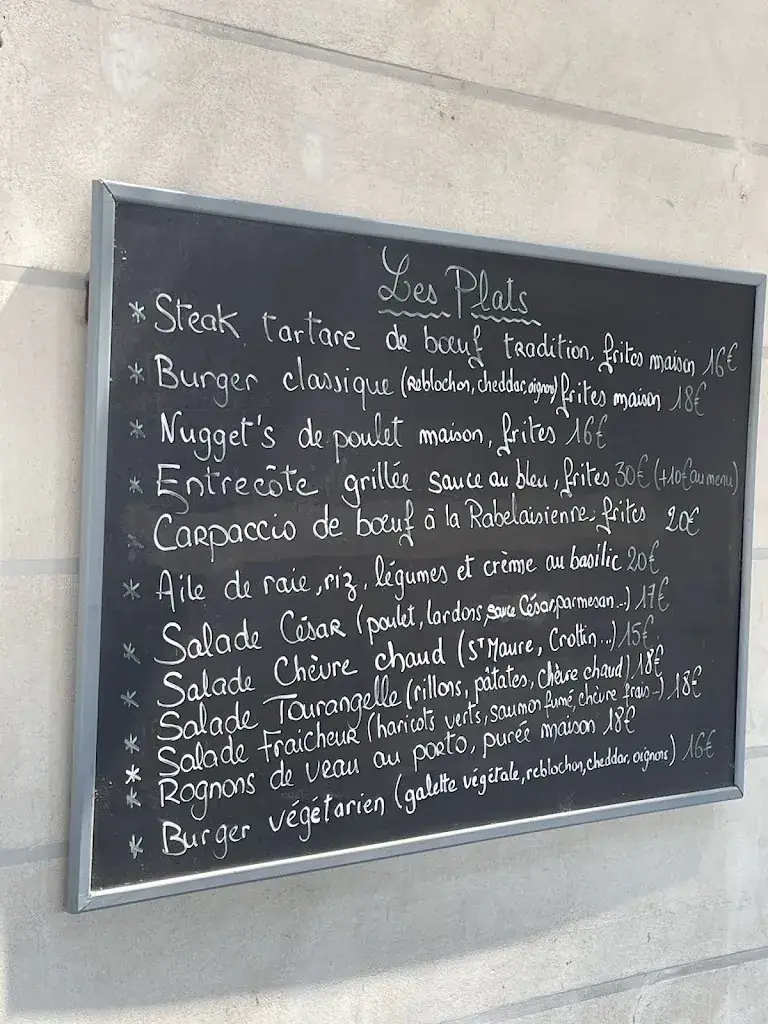 Les Plats
* Steak tartare de bœuf tradition, frites maison 16€
* Burger classique (Reblochon, cheddar, oignons) frites maison 18€
* Nugget's de poulet maison, frites 16€
* Entrecôte grillée sauce au bleu, frites 30€ (+10€ au menu)
* Carpaccio de bœuf à la Rabelaisienne, frites 20€
* Aile de raie, riz, légumes et crème au basilic 20€
* Salade César (poulet, lardons, sauce César, parmesan...) 17€
* Salade Chèvre chaud (St Maure, Crottin...) 15€
* Salade Tourangelle (rillons, pâtates, chèvre chaud) 18€
* Salade Fraîcheur (haricots verts, saumon fumé, chèvre frais...) 18€
* Rognons de veau au porto, purée maison 18€
* Burger végétarien (galette végétale, reblochon, cheddar, oignons) 16€